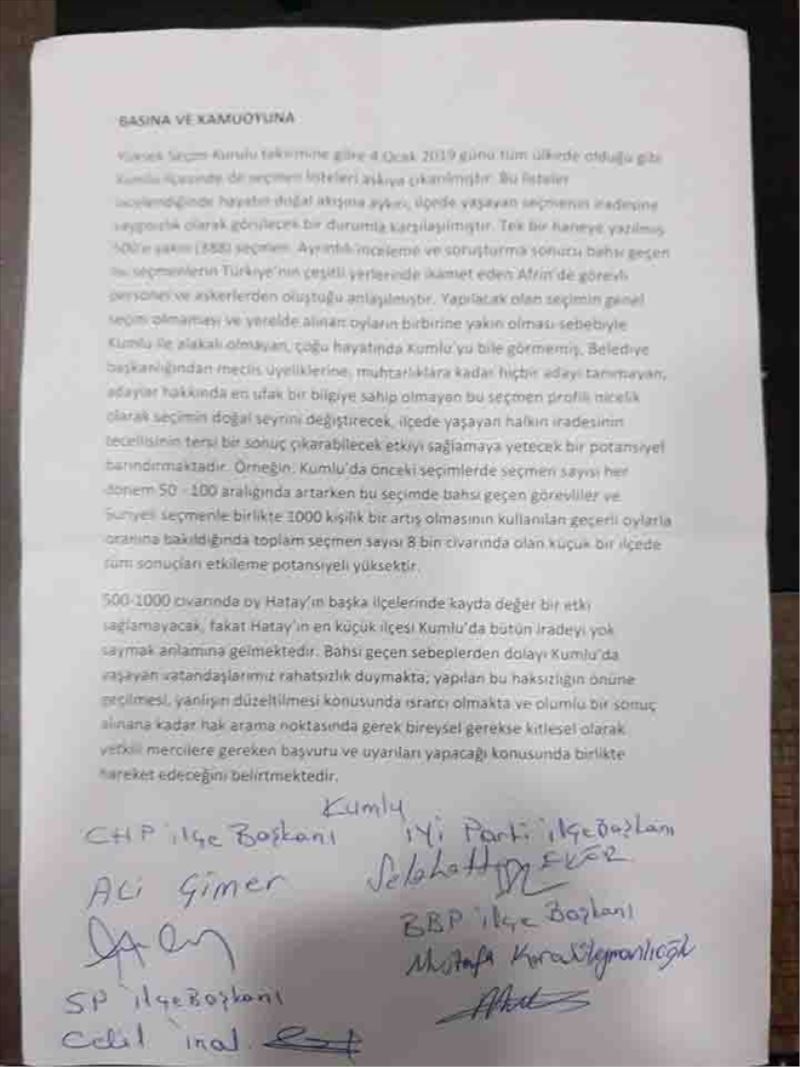 BASINA VE KAMUOYUNA
Yüksek Seçim Kurulu takvimine göre 4 Ocak 2019 günü tüm ülkede olduğu gibi
Kumlu ilçesinde de seçmen listeleri askıya çıkarılmıştır. Bu listeler
incelendiğinde hayatın doğal akışına aykırı, ilçede yaşayan seçmenin iradesine
saygısızlık olarak görülecek bir durumla karşılaşılmıştır. Tek bir haneye yazılmış
yakın (388) seçmen. Ayrıntılı inceleme ve soruşturma sonucu bahsi geçen
bu seçmenlerin Türkiye'nin çeşitli yerlerinde ikamet eden Afrin'de görevli
personel ve askerlerden oluştuğu anlaşılmıştır. Yapılacak olan seçimin genel
seçim olmaması ve yerelde alınan oyların birbirine yakın olması sebebiyle
Kumlu ile alakalı olmayan, çoğu hayatında Kumlu'yu bile görmemiş, Belediye
başkanlığından meclis üyeliklerine, muhtarlıklara kadar hiçbir adayı tanımayan,
adaylar hakkında en ufak bir bilgiye sahip olmayan bu seçmen profili nicelik
olarak seçimin doğal seyrini değiştirecek, ilçede yaşayan halkın iradesinin
tecellisinin tersi bir sonuç çıkarabilecek etkiyi sağlamaya yetecek bir potansiyel
barındırmaktadır. Örneğin; Kumlu'da önceki seçimlerde seçmen sayısı her
dönem 50 - 100 aralığında artarken bu seçimde bahsi geçen görevliler ve
Suriyeli seçmenle birlikte 1000 kişilik bir artış olmasının kullanılan geçerli oylarla
oranına bakıldığında toplam seçmen sayısı 8 bin civarında olan küçük bir ilçede
tüm sonuçları etkileme potansiyeli yüksektir.
500-1000 civarında oy Hatay'ın başka ilçelerinde kayda değer bir etki
sağlamayacak, fakat Hatay'ın en küçük ilçesi Kumlu'da bütün iradeyi yok
saymak anlamına gelmektedir. Bahsi geçen sebeplerden dolayı Kumlu'da
yaşayan vatandaşlarımız rahatsızlık duymakta; yapılan bu haksızlığın önüne
geçilmesi, yanlışın düzeltilmesi konusunda ısrarcı olmakta ve olumlu bir sonuç
alınana kadar hak arama noktasında gerek bireysel gerekse kitlesel olarak
yetkili mercilere gereken başvuru ve uyarıları yapacağı konusunda birlikte
hareket edeceğini belirtmektedir.
Kumlu
CHP ilçe Başkanı
İYİ Parti ilçe Başkanı
Ali Gimer
BBP ilçe Başkanı
Mustafa Karasüleymanlıoğlu
SP ilçe Başkanı
Celil inal